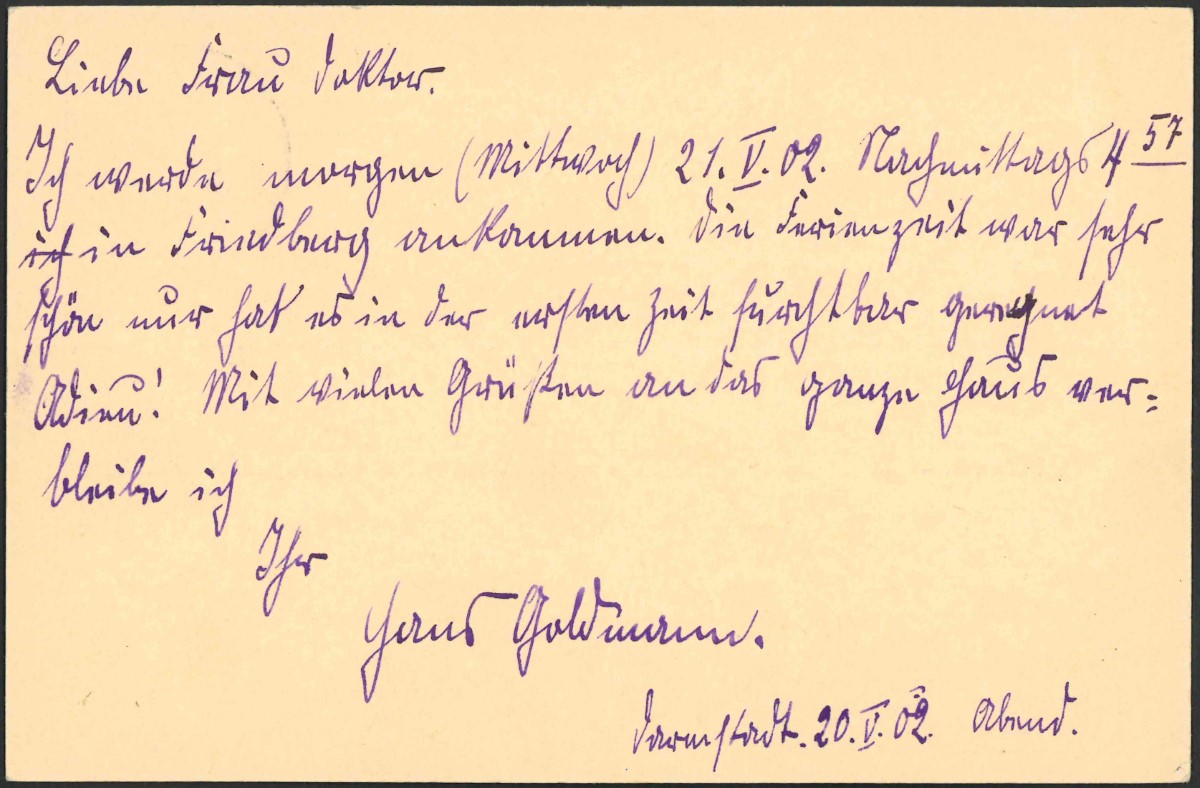 Liebe Frau Doktor.
Ich werde morgen (Mittwoch) 21. V. 02. Nachmittags 4 57
ich in Friedberg ankommen. Die Ferienzeit war sehr
schön nur hat es in der ersten Zeit furchtbar geregnet
Adieu! Mit vielen Grüßen an das ganze Haus ver=
bleibe ich
Ihr
Hans Goldmann.
Darmstadt. 20. V. 02. Abend.